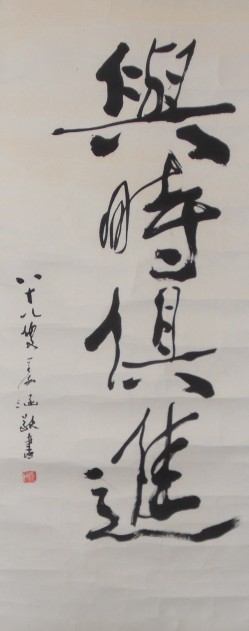 與時俱進
八十八叟
敬書